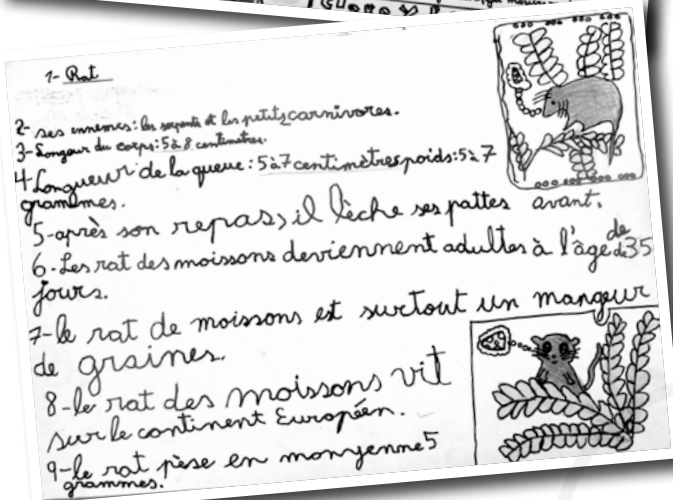 1- Rat
2- ses ennemis: les serpents et les petits carnivores.
3- Longeur du corps: 5 à 8 centimètres.
4 Longueur de la queue: 5 à 7 centimètres poids: 5 à 7
grammes.
5-après son repas, il lèche ses pattes avant.
6-Les rat des moissons deviennent adultes à l'âge de 35
jours.
7-le rat de moissons est surtout un mangeur
de graines.
8-le rat des moissons vit
sur le continent Européen.
9-le rat pèse en monyenne 5
grammes.